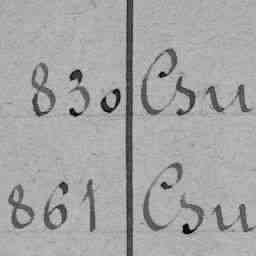 830 Csu
861 Csu